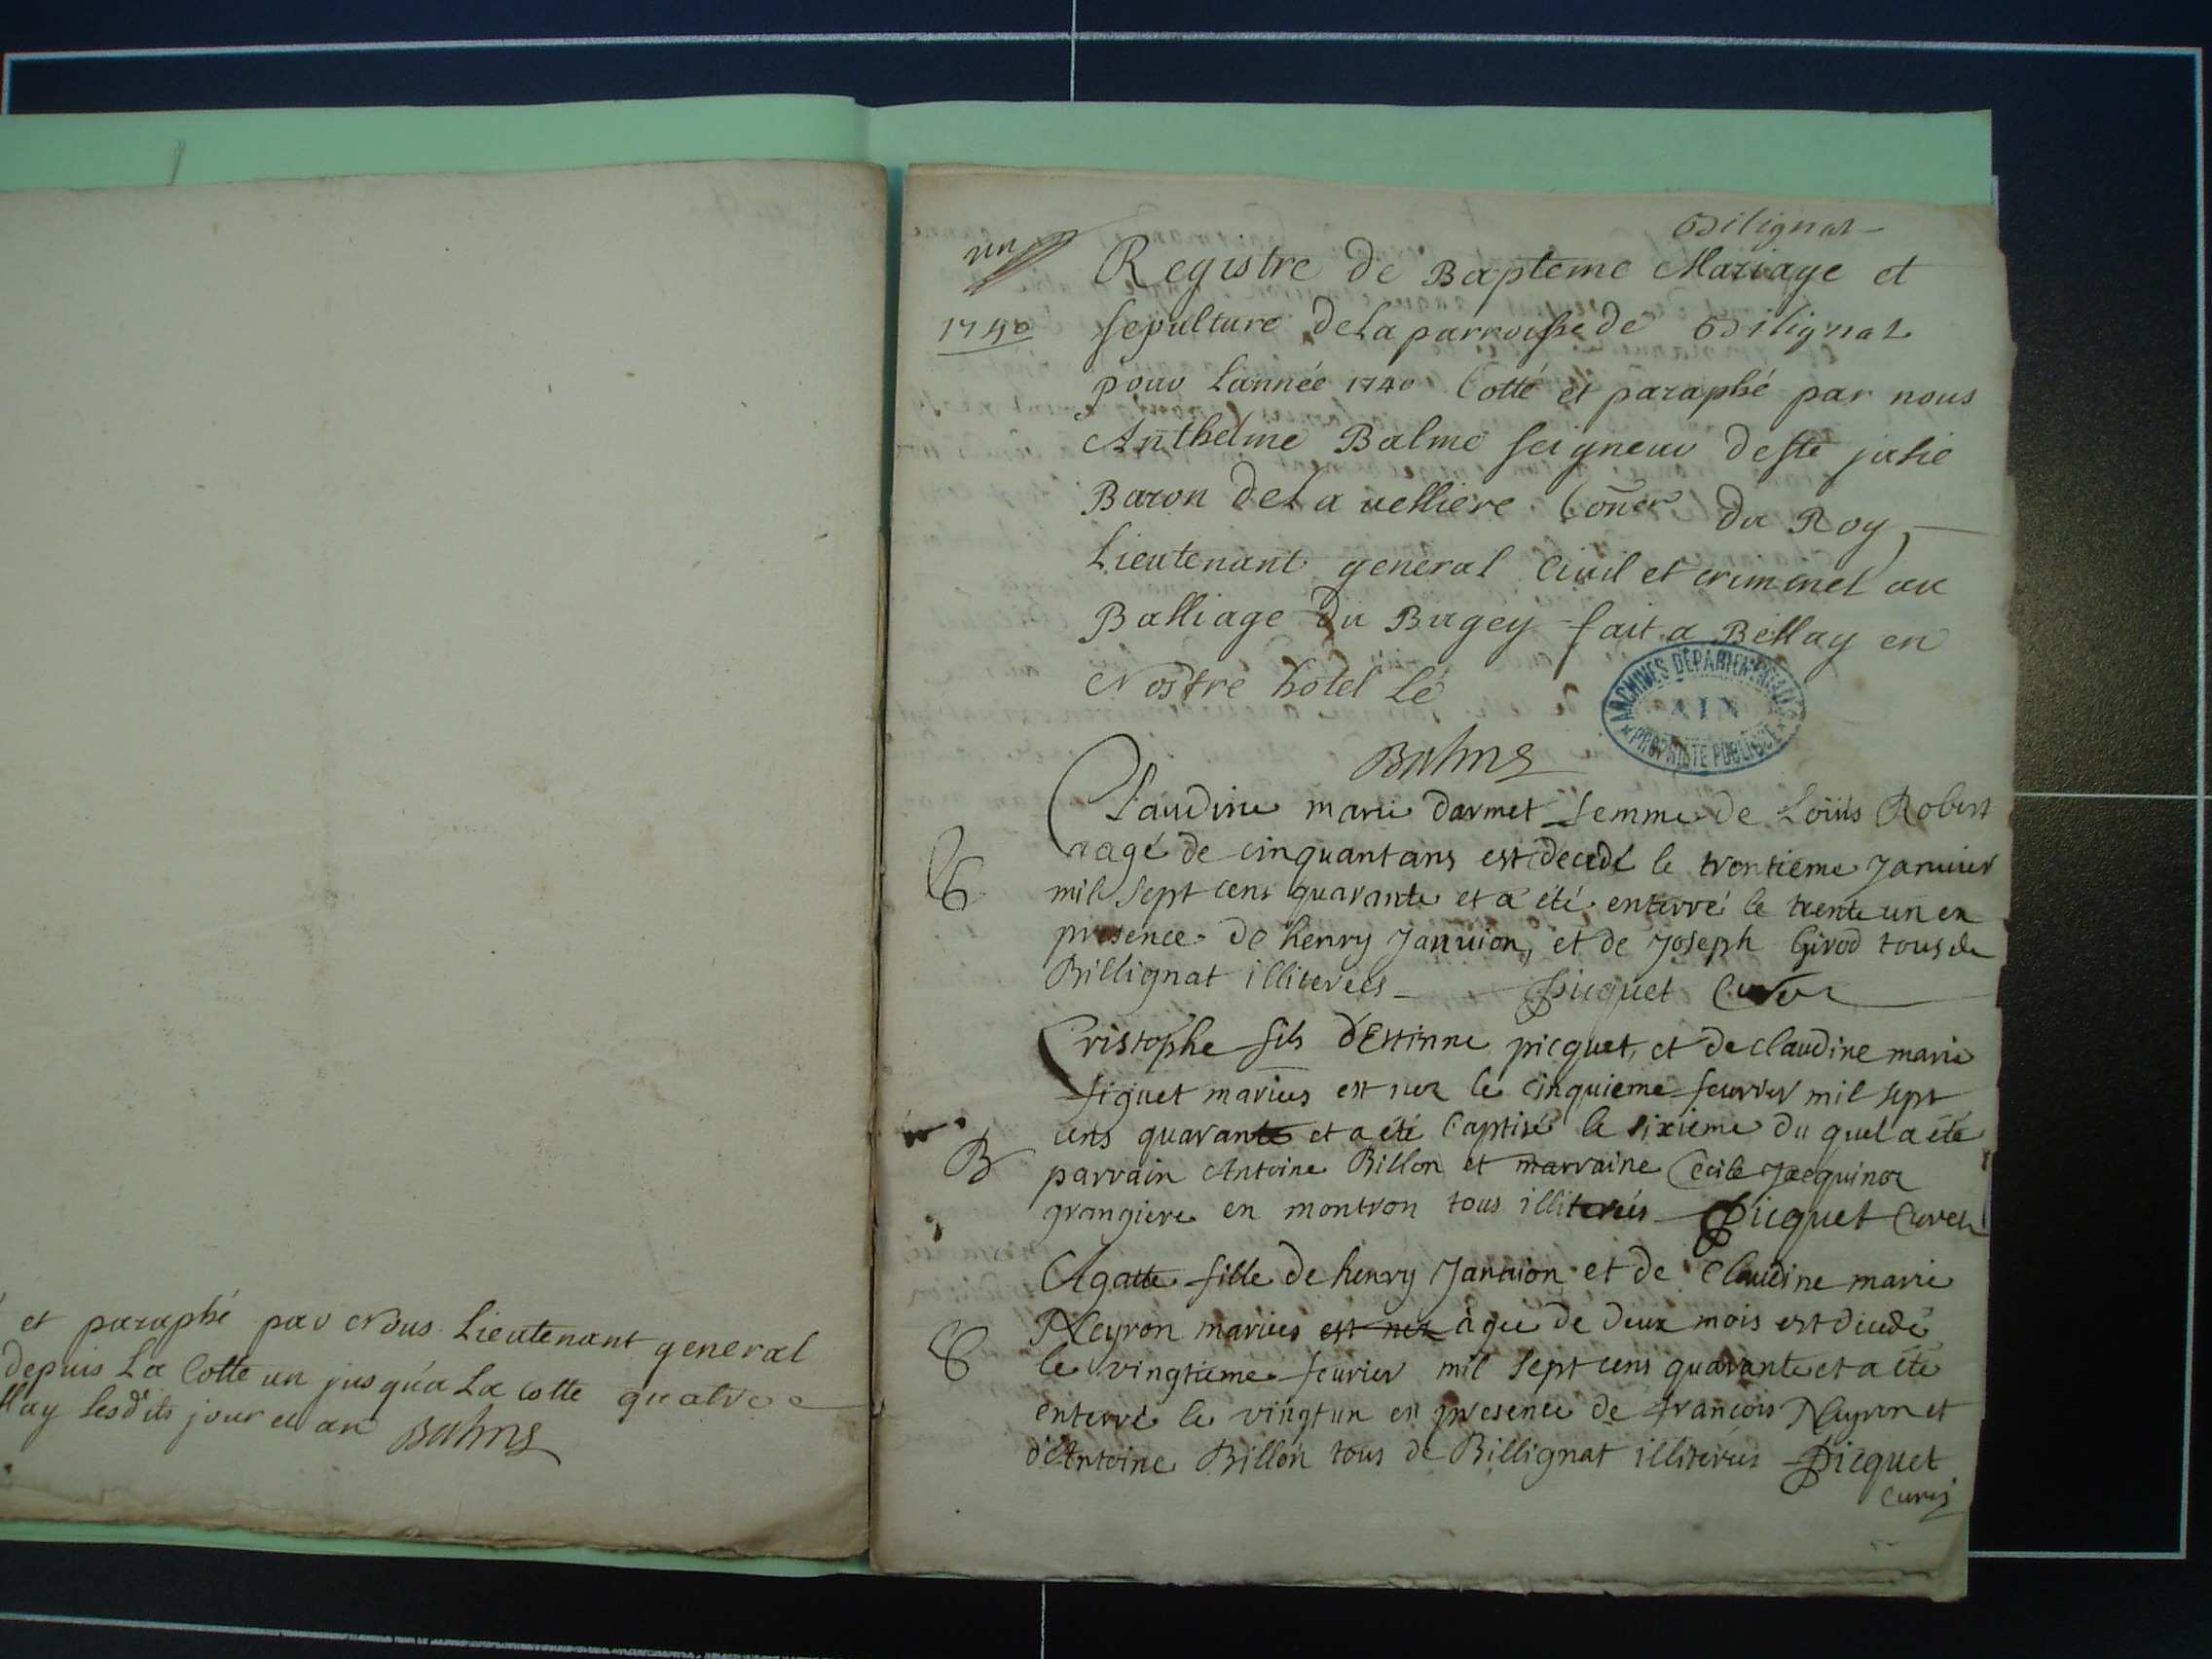 et paraphé par Nous Lieutenant general
depuis La Cotte un jusqu'a La cotte quatre
llay lesdits jour et an Balme
Bilignat
un
Registre de Bapteme Mariage et
1740 sepulture de La parroisse de Bilignat
pour L'année 1740 Cotté et paraphé par nous
Anthelme Balme seigneur de ste julie
Baron de La vellière Coner du Roy,
Lieutenant general Civil et criminel au
Balliage du Bugey fait a Bellay en
Nostre hotel Le
ARCHIVES DÉPARTEMENTALES
AIN
PROPRIÉTÉ PUBLIQUE
Balme
Claudine marie darmet femme de Loüis Robert
agé de cinquant ans est decedé le trentieme Janvier
mil sept cens quarante et a été enterré le trente un en
presence de henry Januion, et de Joseph Girod tous de
Billignat illiterées Picquet Curez
Cristophe fils d'Estinne picquet, et de claudine marie
figuet mariés est nez le cinquieme feuvrier mil sept
B cens quarante et a été baptisé le sixieme du quel a été
parrain Antoine Billon et marraine Cecile Jacquinoz
grangiere en montron tous illiterés Picquet Curez
Agatte fille de henry Januion et de Claudine marie
Neyron mariés est nez âgée de deux mois est decedé
le vingtieme feurier mil sept cens quarante et a été
enterré le vingt un en presence de françois Neyron et
d'Antoine Billon tous de Billignat illiterés Picquet
Curez